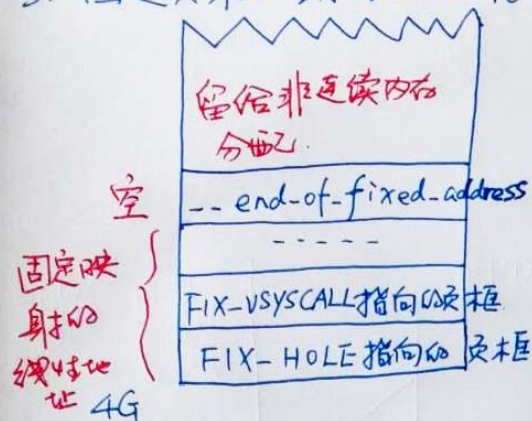 留给非连续内存
分配.
空
-- end-of-fixed-address
-----
固定映
射的
线性地
址
FIX-VSYSCALL指向的页框
FIX-HOLE指向的页框
4G